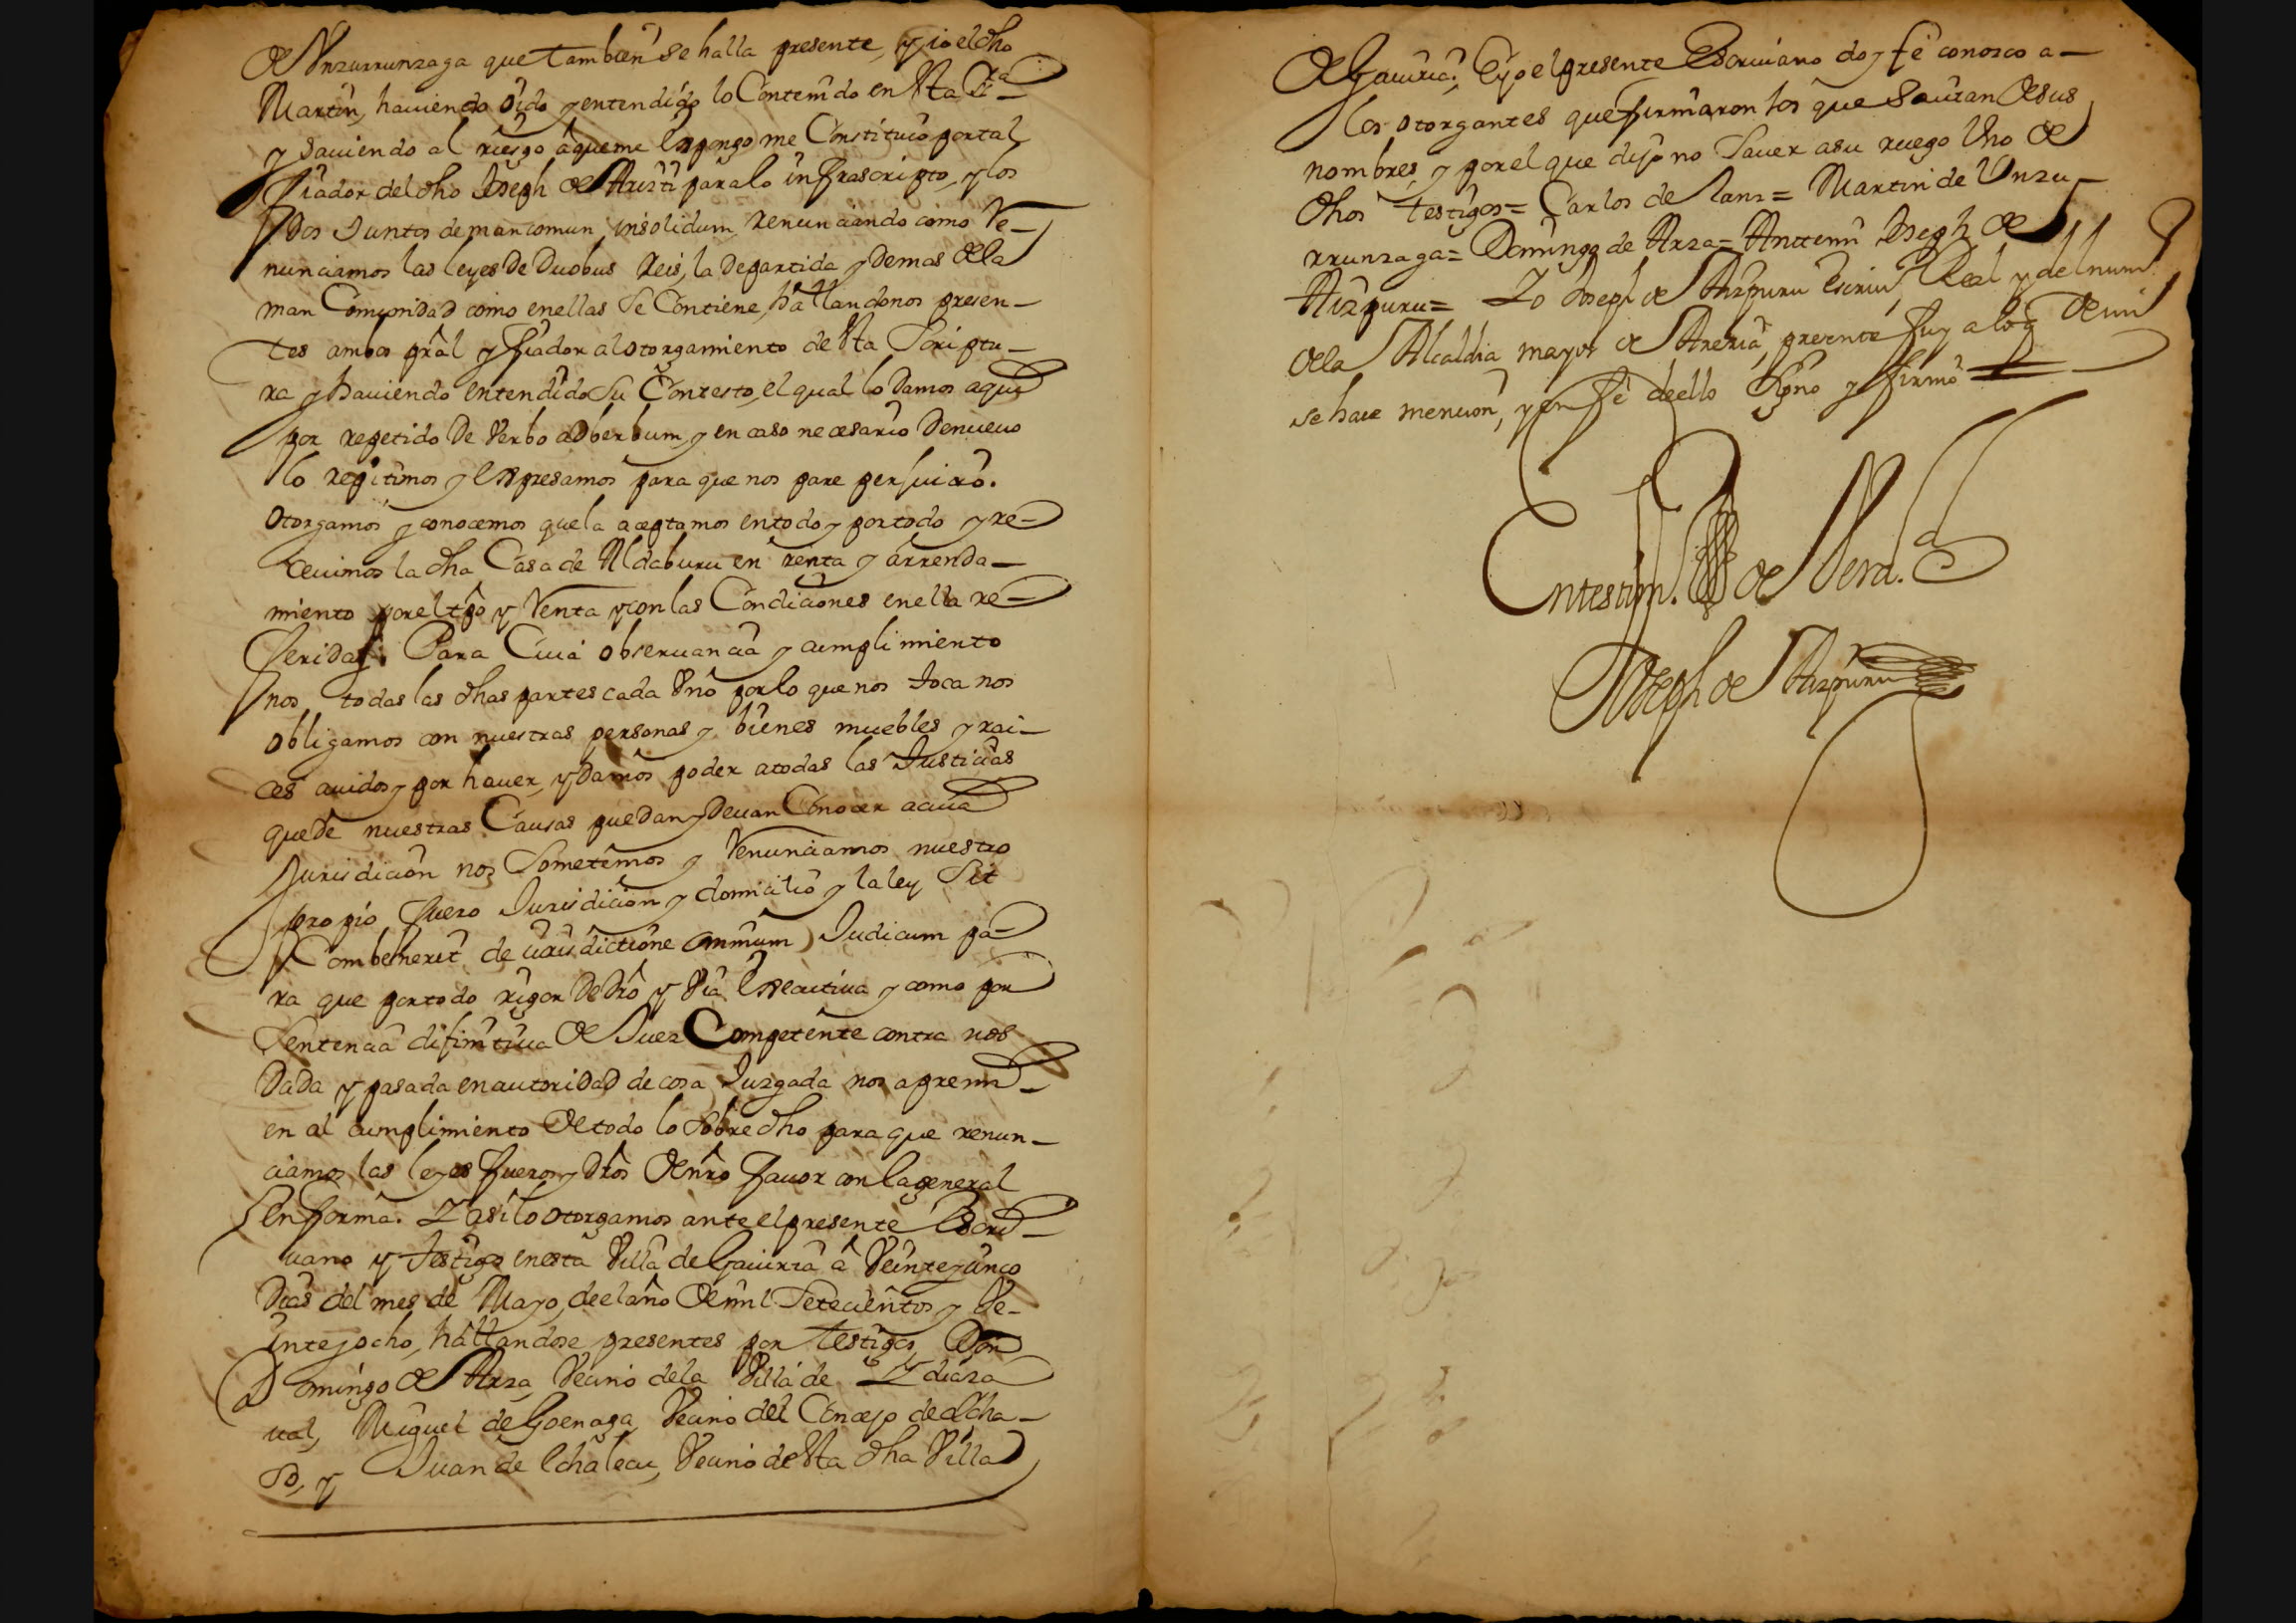 de Vnzurrunzaga que tambien se halla presente, y io el dho
Martin, hauiendo oido y entendido lo Contenido en esta Scra
y sauiendo al riesgo aque me espongo me Constituio por tal
fiador del dho Joseph de Arizti para lo infrascripto, y los
Dos Juntos de mancomun, insolidum, renunciando como Re-
nunciamos las leyes De Duobus Reis, la Departida y Demas dela
man Comunidad como enellas Se Contiene, hallandonos presen-
tes ambos pral y fiador al otorgamiento de esta Scriptu-
ra y hauiendo entendido Su Contesto, el qual lo Damos aqui
por repetido De Verbo adberbum, y en caso necesario Denueuo
lo repitimos y espresamos para que nos pare perjuicio.
Otorgamos y conocemos que la aceptamos entodo y portodo y re-
ceuimos la dha Casa de Aldaburu en renta y arrenda-
miento por el tpo y Renta y con las Condiciones enella re-
feridas. Para Cuia obseruancia y cumplimiento
nos todas las dhas partes cada Vno por lo que nos toca nos
obligamos con nuestras personas y bienes muebles y rai-
ces auidos y por hauer, y Damos poder atodas las Justicias
que De nuestras Causas puedan y Deuan Conocer acuia
Jurisdicion nos Sometemos y Renunciamos nuestro
propio fuero Jurisdicion y domicilio y la ley Sit
Combenerit de iurisdictione omnium Judicum pa-
ra que portodo rigor De dro y Via Executiua y como por
Sentencia difinitiua de Juez Competente contra nos
Dada y pasada en autoridad de cosa Juzgada nos apremi-
en al cumplimiento de todo lo Sobre dho para que renun-
ciamos las leyes fueros y Dros de nro fauor con la general
en forma. Y asi lo otorgamos ante el presente Escri-
uano y testigos en esta Villa de Gauiria a Veinte y cinco
Dias del mes de Mayo, de el año de mil Setecientos y Ve-
inte y ocho, hallandose presentes por testigos Don
Domingo de Arza, Vecino dela Villa de Ydiaza
ual, Miguel de Goenaga Vecino del Concejo de olcha-
so, y Juan de Echaleau, Vecino de esta dha Villa
de Gauiria; E yo el presente Escriuano doy fe conosco a-
los otorgantes que firmaron los que Sauian de sus
nombres, y por el que dijo no Sauer asu ruego Vno de
dhos testigos = Carlos de Sanz = Martin de Vnzu-
rrunzaga = Domingo de Arza = Anttemi Joseph de
Aizpuru = Yo Joseph de Aizpuru Escriuo Real y del num
de la Alcaldia mayor de Areria presente fuy a lo q de mi
se hace mencion, y en fe de ello Signo y firmo
En testim. de Verd.
Joseph de Aizpuru